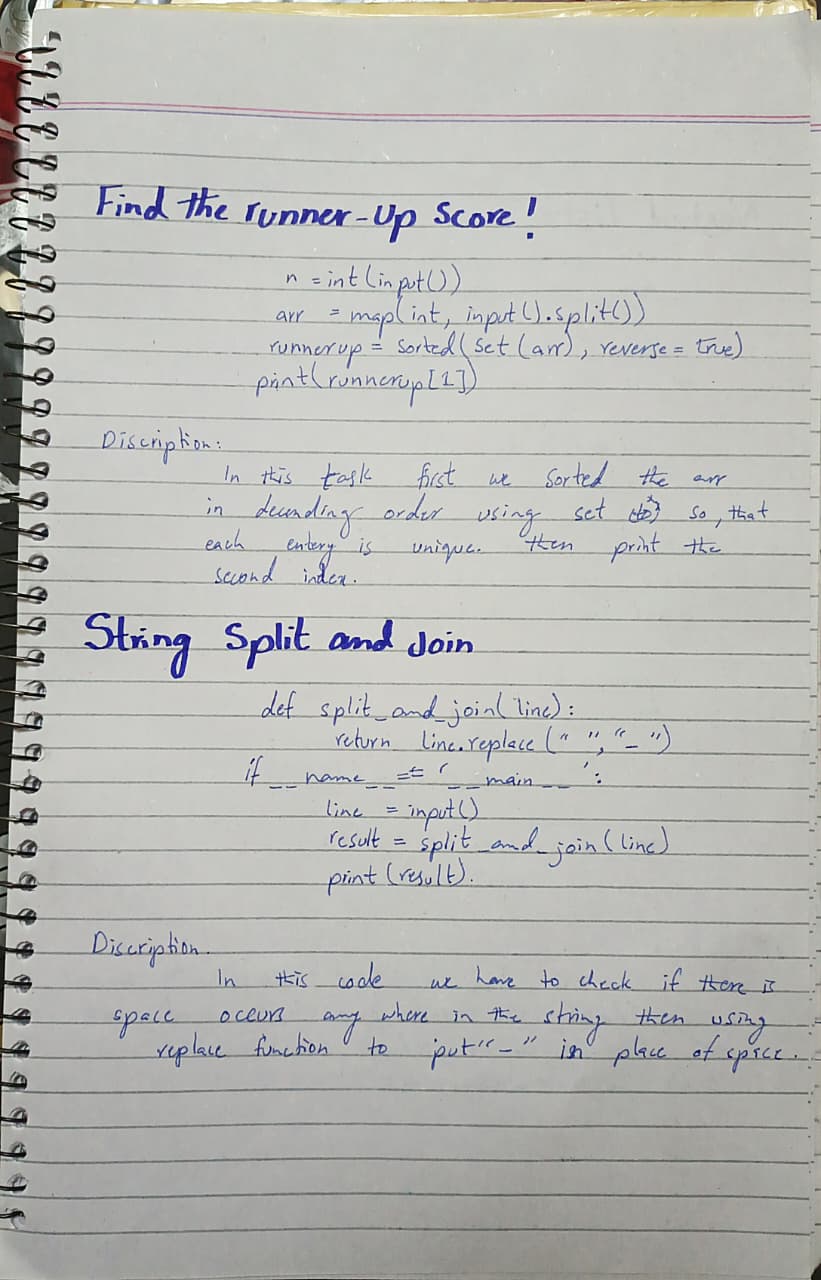 Find the runner-up score!
n = int(input())
arr = map(int, input().split())
runnerup = sorted(set(arr), reverse = true)
print(runnerup[1])
Discription:
In this task first we sorted the arr
in decending order using set so, that
each entery is unique. then print the
second index.
String Split and Join
def split_and_join(line):
return line.replace(" ", "_")
if __name__ == '__main__':
line = input()
result = split_and_join(line)
print(result).
Discription.
In this code we have to check if there is
space occurs any where in the string then using
replace function to put "-" in place of space.